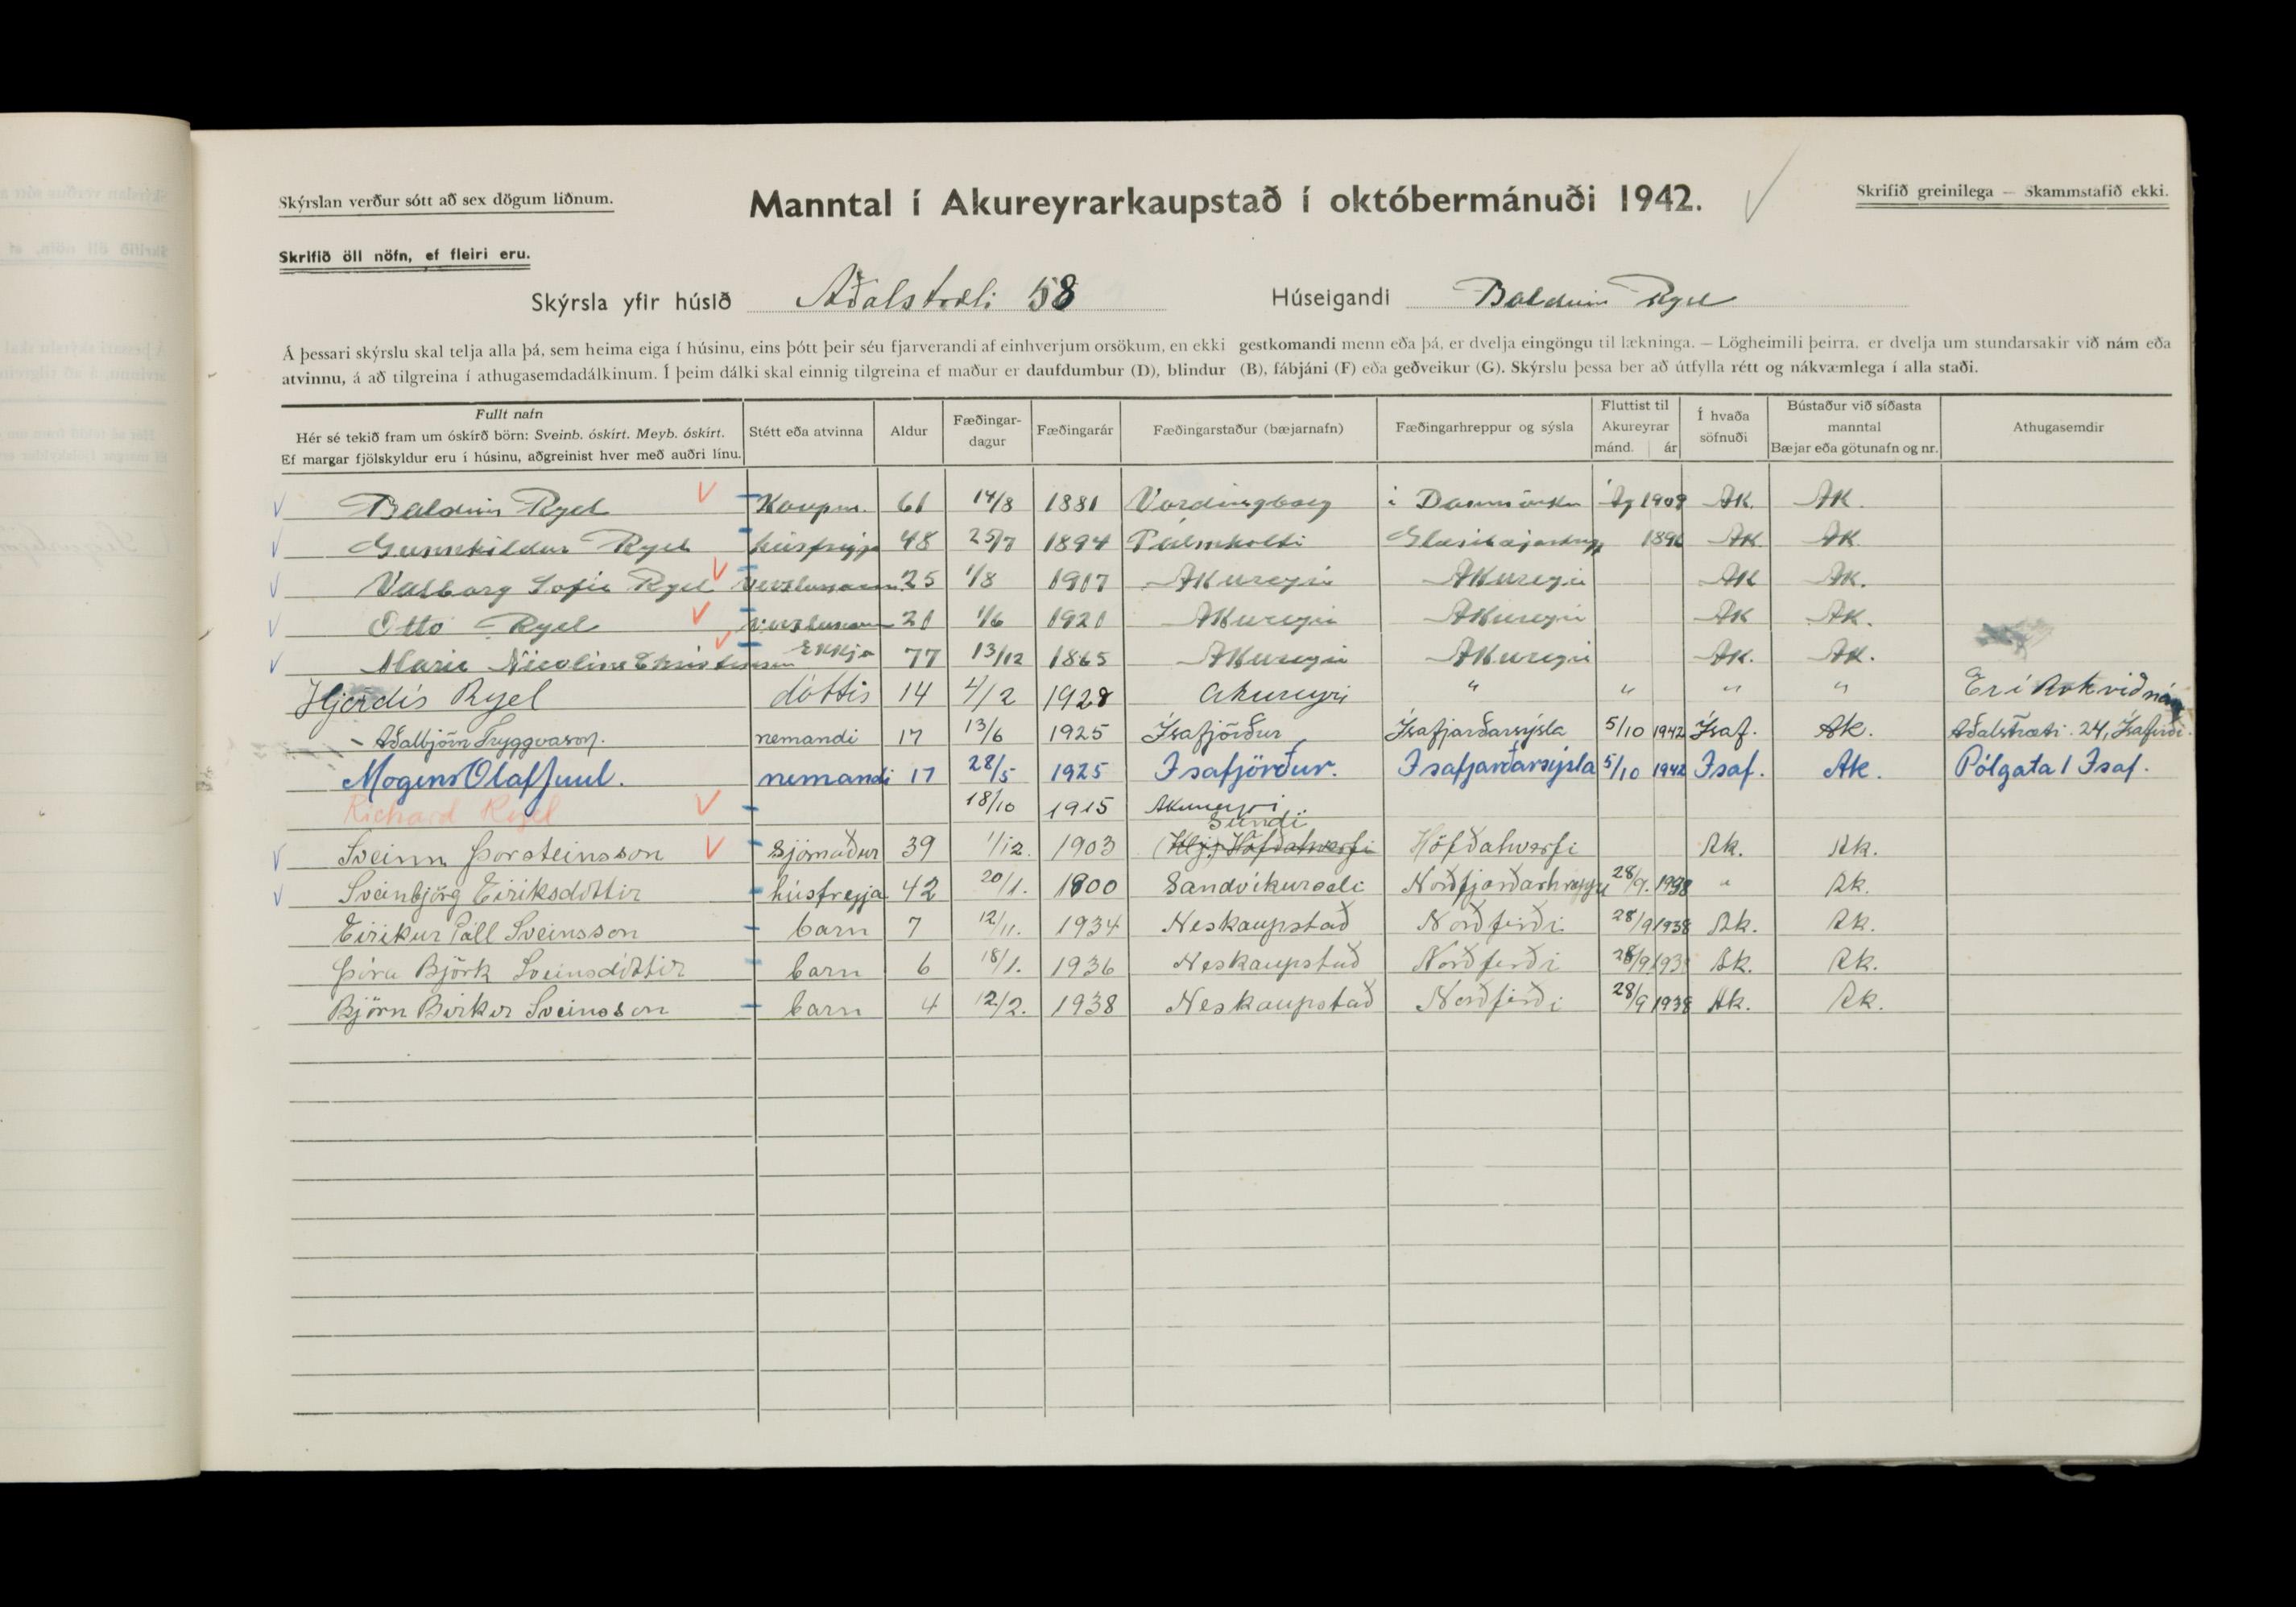 Skýrslan verður sótt að sex dögum liðnum.
Manntal í Akureyrarkaupstað í októbermánuði 1942.
Skrifið greinilega — Skammstafið ekki.
Skrifið öll nöfn, ef fleiri eru.
Skýrsla yfir húsið Aðalstræti 58 Húseigandi Balduin Ryel
Á þessari skýrslu skal telja alla þá, sem heima eiga í húsinu, eins þótt þeir séu fjarverandi af einhverjum orsökum, en ekki gestkomandi menn eða þá, er dvelja eingöngu til lækninga. — Lögheimili þeirra, er dvelja um stundarsakir við nám eða
atvinnu, á að tilgreina í athugasemdadálkinum. Í þeim dálki skal einnig tilgreina ef maður er daufdumbur (D), blindur (B), fábjáni (F) eða geðveikur (G). Skýrslu þessa ber að útfylla rétt og nákvæmlega í alla staði.
Fullt nafn
Hér sé tekið fram um óskírð börn: Sveinb. óskírt. Meyb. óskírt.
Ef margar fjölskyldur eru í húsinu, aðgreinist hver með auðri línu.
Stétt eða atvinna
Aldur
Fæðingar-
dagur
Fæðingarár
Fæðingarstaður (bæjarnafn)
Fæðingarhreppur og sýsla
Fluttist til
Akureyrar
mánd. ár
Í hvaða
söfnuði
Bústaður við síðasta
manntal
Bæjar eða götunafn og nr.
Athugasemdir
Balduin Ryel Kaupm. 61 14/8 1881 Vordingborg í Danmörku 1909 AK. AK.
Gunnhildur Ryel húsfreyja 48 25/7 1894 AK. AK.
Valborg Sofie Ryel 25 1/8 1917 Akureyri Akureyri AK AK.
Otto Ryel 21 1/6 1921 Akureyri Akureyri AK AK.
Marie Nicoline Christensen Ekkja 77 13/12 1865 Akureyri Akureyri AK. AK.
Hjördís Ryel dóttir 14 4/2 1928 Akureyri " " " " Er í Rvk við nám
- Aðalbjörn Tryggvason. nemandi 17 13/6 1925 Ísafjörður Ísafjarðarsýsla 5/10 1942 Ísaf. Ak. Aðalstræti 24, Ísafirði.
Mogens Olaf Juul. nemandi 17 28/5 1925 Isafjörður. Isafjarðarsýsla 5/10 1942 Isaf. Ak. Pólgata 1 Isaf.
Richard Ryel 18/10 1915 Akureyri
Sundi
Sveinn Þorsteinsson Sjómaður 39 1/12. 1903 Höfðahverfi Höfðahverfi Ak. Ak.
Sveinbjörg Eiríksdóttir húsfreyja 42 20/1. 1900 Sandvíkurseli Norðfjarðarhreppi 28/9. 1938 " Ak.
Eiríkur Páll Sveinsson barn 7 12/11. 1934 Neskaupstað Norðfirði 28/9 1938 Ak. Ak.
Þóra Björk Sveinsdóttir barn 6 18/1. 1936 Neskaupstað Norðfirði 28/9 1938 Ak. Ak.
Björn Birkir Sveinsson barn 4 12/2. 1938 Neskaupstað Norðfirði 28/9 1938 Ak. Ak.